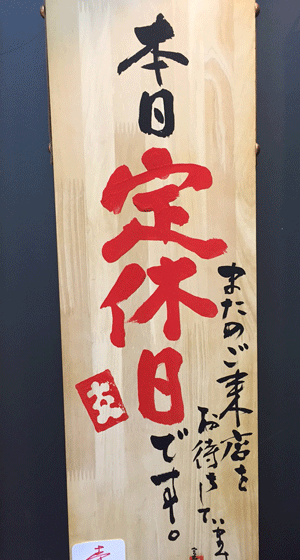 本日定休日です。
またのご来店を
お待ちしていま